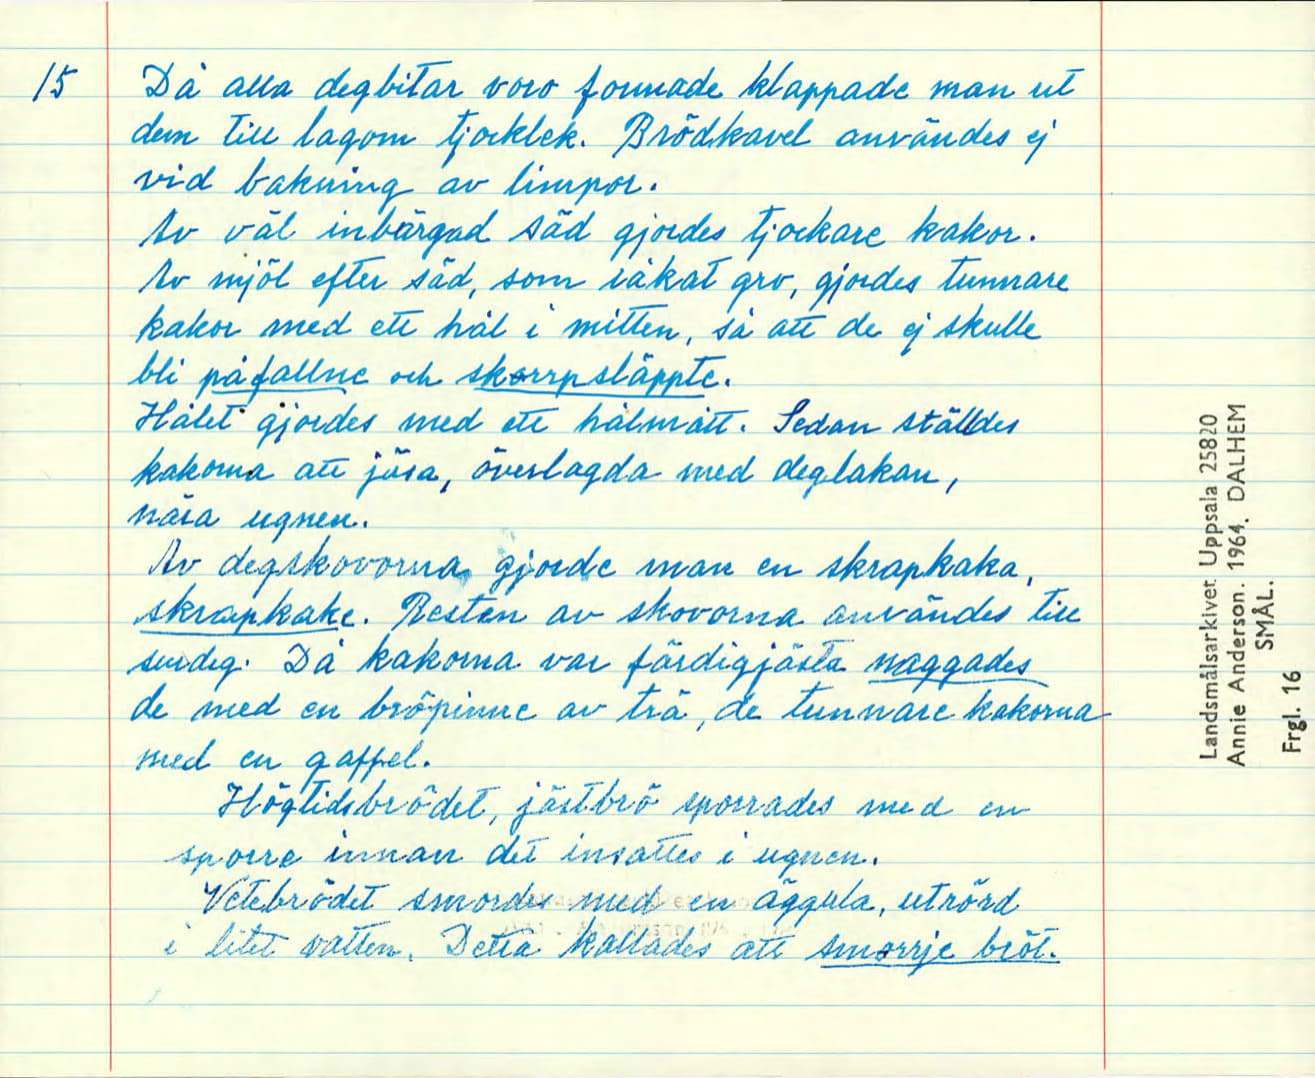 15 Då alla degbitar voro formade klappade man ut
dem till lagom tjocklek. Brödkavel användes ej
vid bakning av limpor.
Av väl inbärgad säd gjordes tjockare kakor.
Av mjöl efter säd, som råkat gro, gjordes tunnare
kakor med ett hål i mitten, så att de ej skulle
bli påfallne och skorrpsläppte.
Hålet gjordes med ett hålmått. Sedan ställdes
kakorna att jäsa, överlagda med deglakan,
nära ugnen.
Av degskovorna gjorde man en skrapkaka,
skrapkake. Resten av skovorna användes till
surdeg. Då kakorna var färdigjästa naggades
de med en bröpinne av trä, de tunnare kakorna
med en gaffel.
Högtidsbrödet, jästbrö sporrades med en
sporre innan det insattes i ugnen.
Vetebrödet smordes med en äggula, utrörd
i litet vatten. Detta kallades att smorrje bröt.
Landsmålsarkivet Uppsala 25820
Annie Anderson. 1964. DALHEM
SMÅL.
Frgl. 16